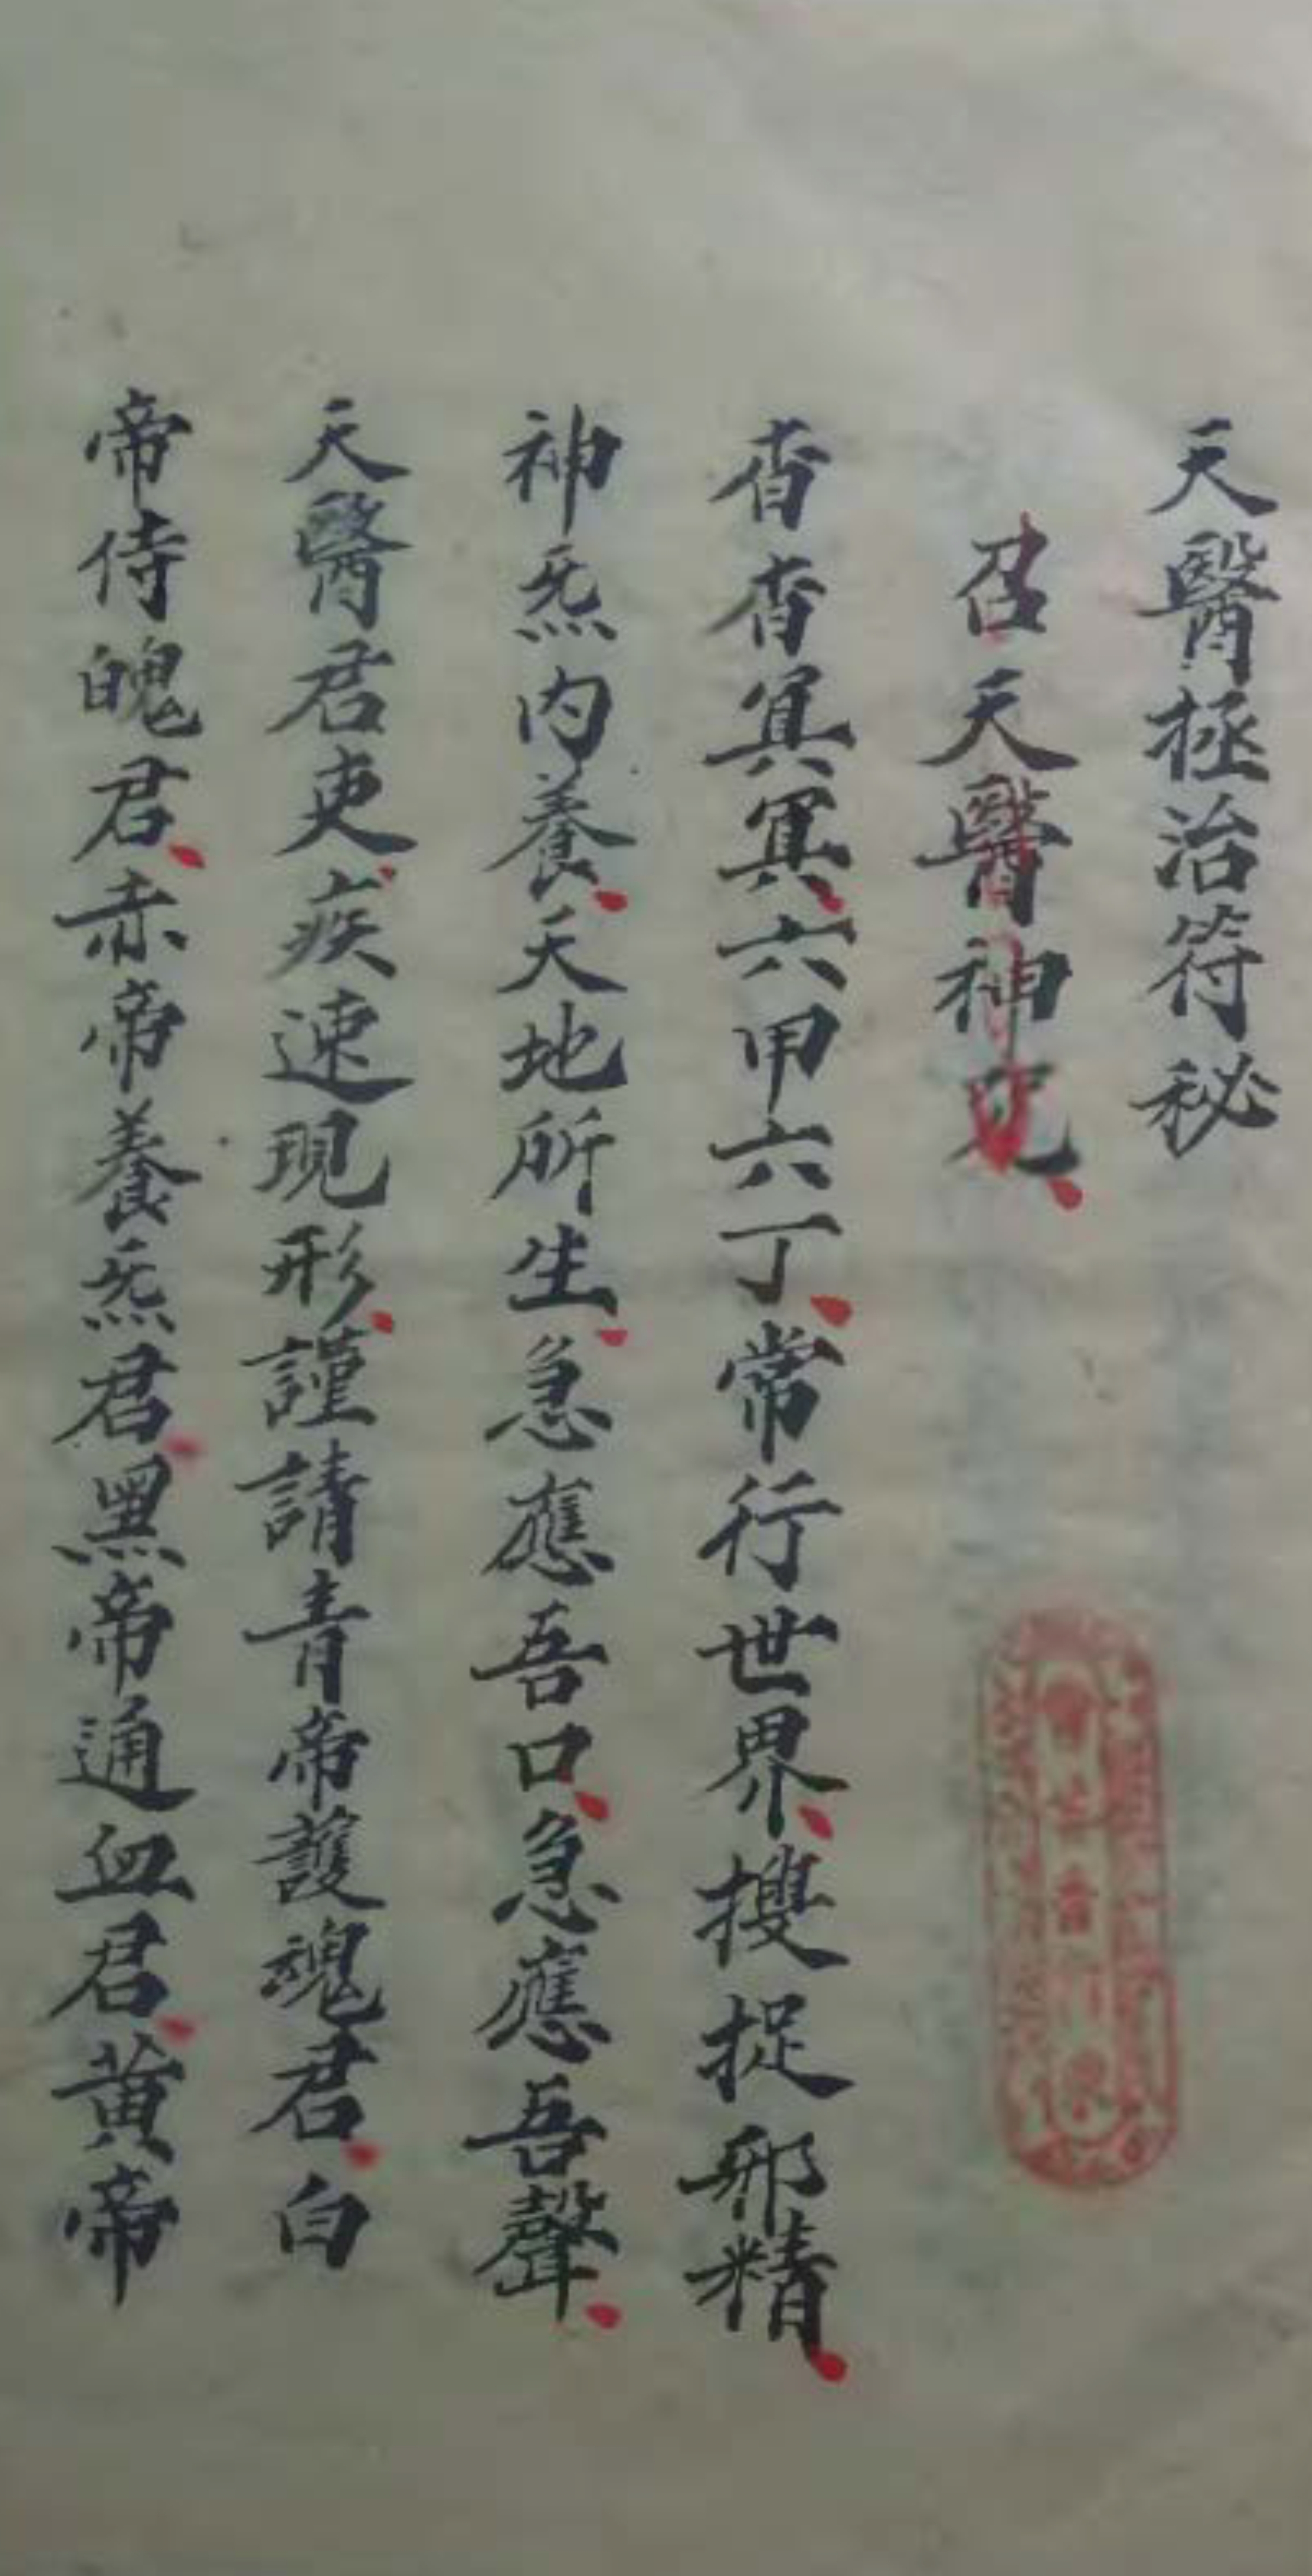 天醫拯治符秘
召天醫神咒
杳杳冥冥六甲六丁常行世界搜捉邪精
神炁內養天地所生急應吾口急應吾聲
天醫君吏疾速現形謹請青帝護魂君白
帝侍魄君赤帝養炁君黑帝通血君黃帝